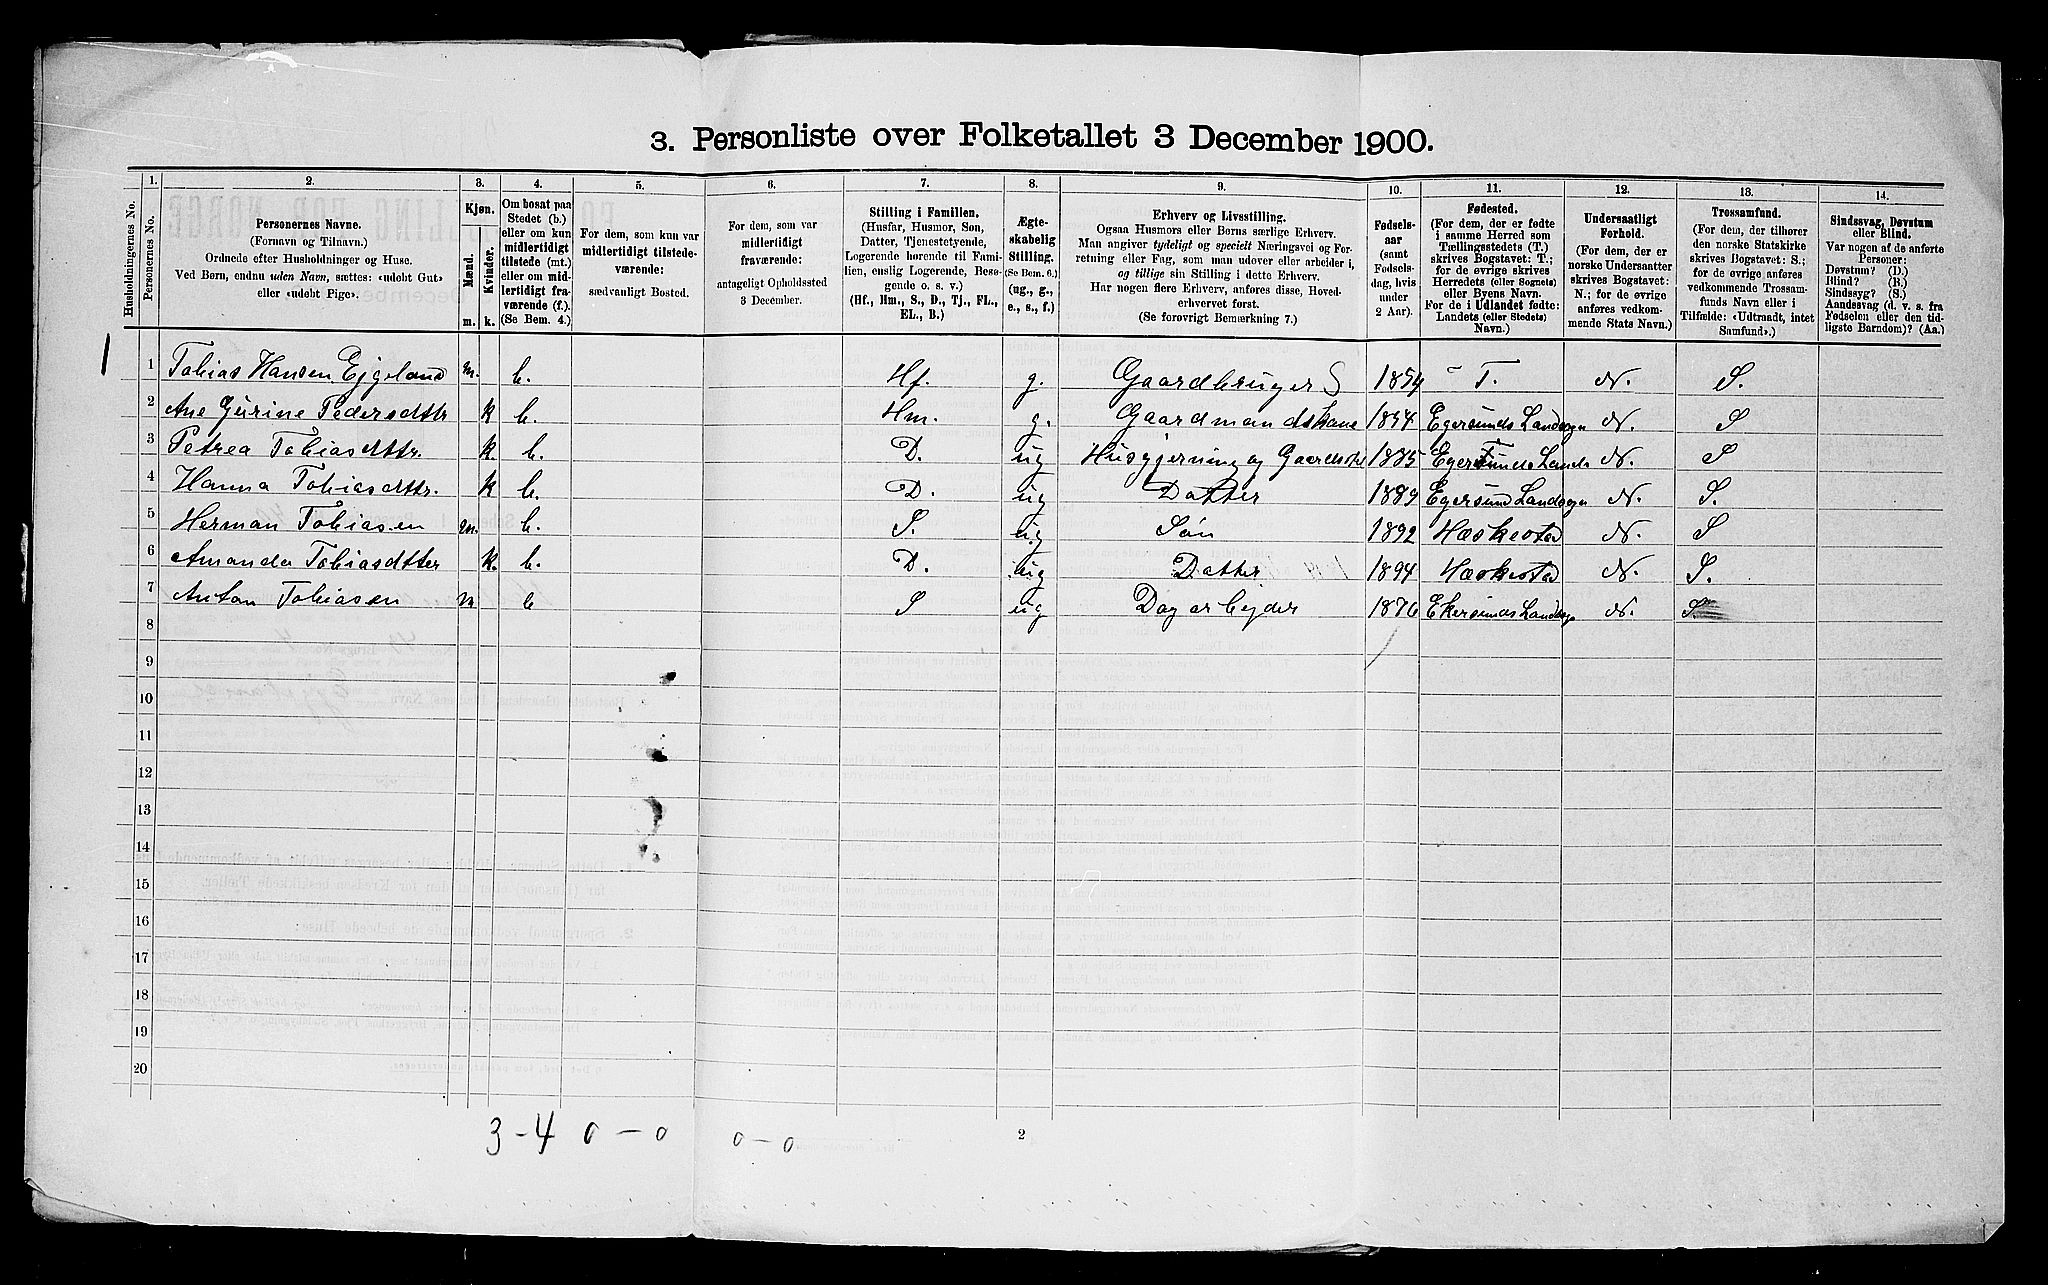 3. Personliste over Folketallet 3 December 1900.
Husholdningernes No.
1.
Personernes No.
2.
Personernes Navne.
(Fornavn og Tilnavn.)
Ordnede efter Husholdninger og Huse.
Ved Børn, endnu uden Navn, sættes: «udøbt Gut»
eller «udøbt Pige».
3.
Kjøn.
Mænd.
Kvinder.
m.
k.
4.
Om bosat paa
Stedet (b.)
eller om kun
midlertidigt
tilstede (mt.)
eller om mid-
lertidigt fra-
værende (f.).
(Se Bem. 4.)
5.
For dem, som kun var
midlertidigt tilstede-
værende:
sædvanligt Bosted.
6.
For dem, som var
midlertidigt
fraværende:
antageligt Opholdssted
3 December.
7.
Stilling i Familien.
(Husfar, Husmor, Søn,
Datter, Tjenestetyende,
Logerende hørende til Fami-
lien, enslig Logerende, Besø-
gende o. s. v.)
(Hf., Hm., S., D., Tj., FL.,
EL., B.)
8.
Ægte-
skabelig
Stilling.
(Se Bem. 6.)
(ug., g.,
e., s., f.)
9.
Erhverv og Livsstilling.
Ogsaa Husmors eller Børns særlige Erhverv.
Man angiver tydeligt og specielt Næringsvei og For-
retning eller Fag, som man udover eller arbeider i,
og tillige sin Stilling i dette Erhverv.
Har nogen flere Erhverv, anføres disse, Hoved-
erhvervet først.
(Se forøvrigt Bemærkning 7.)
10.
Fødsels-
aar
(samt
Fødsels-
dag, hvis
under
2 Aar).
11.
Fødested.
(For dem, der er fødte
i samme Herred som
Tællingsstedets (T.)
skrives Bogstavet: T.;
for de øvrige skrives
Herredets (eller Sognets)
eller Byens Navn.
For de i Udlandet fødte:
Landets (eller Stedets)
Navn.)
12.
Undersaatligt
Forhold.
(For dem, der er
norske Undersaatter
skrives Bogstavet:
N.; for de øvrige
anføres vedkom-
mende Stats Navn.)
13.
Trossamfund.
(For dem, der tilhører
den norske Statskirke
skrives Bogstavet: S.;
for de øvrige anføres
vedkommende Trossam-
funds Navn eller i
Tilfælde: «Udtraadt, intet
Samfund».)
14.
Sindssvag, Døvstum
eller Blind.
Var nogen af de anførte
Personer:
Døvstum? (D.)
Blind? (B.)
Sindssyg? (S.)
Aandessvag (d. v. s. fra
Fødselen eller den tid-
ligste Barndom)? (Aa.)
1 Tobias Hansen Ejgeland m. b. Hf. g. Gaardbruger S 1854 T. N. S.
2 Ane Gurine Pedersdttr k b. Hm. g. Gaardmandskone 1854 Egersunds Landsogn N. S
3 Petrea Tobiasdttr. k. b. D. ug Husgjerning og 1885 Egersunds Lands N. S
4 Hanna Tobiasdttr. k b. D. ug Datter 1889 Egersund Landsogn N. S.
5 Herman Tobiasen m. b. S. ug Søn 1892 Heskestad N. S
6 Amanda Tobiasdtter k. b. D. ug Datter 1894 Heskestad N. S.
7 Anton Tobiasen m b S ug Dagarbejder 1876 Ekersunds Landsogn N. S.
8
9
10
11
12
13
14
15
16
17
18
19
20
3 - 4 0 - 0 0 - 0
2